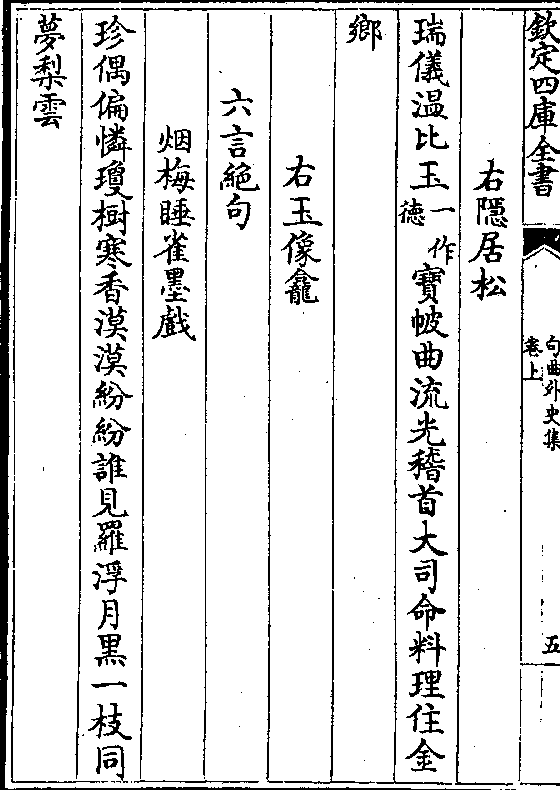 欽定四庫全書
句曲外史集
卷上
五
右隱居松
瑞儀温比玉一作德寶帔曲流光稽首大司命料理住金
鄉
右玉像龕
六言絕句
烟梅睡雀墨戲
珍偶偏憐瓊樹寒香漠漠紛紛誰見羅浮月黒一枝同
夢梨雲